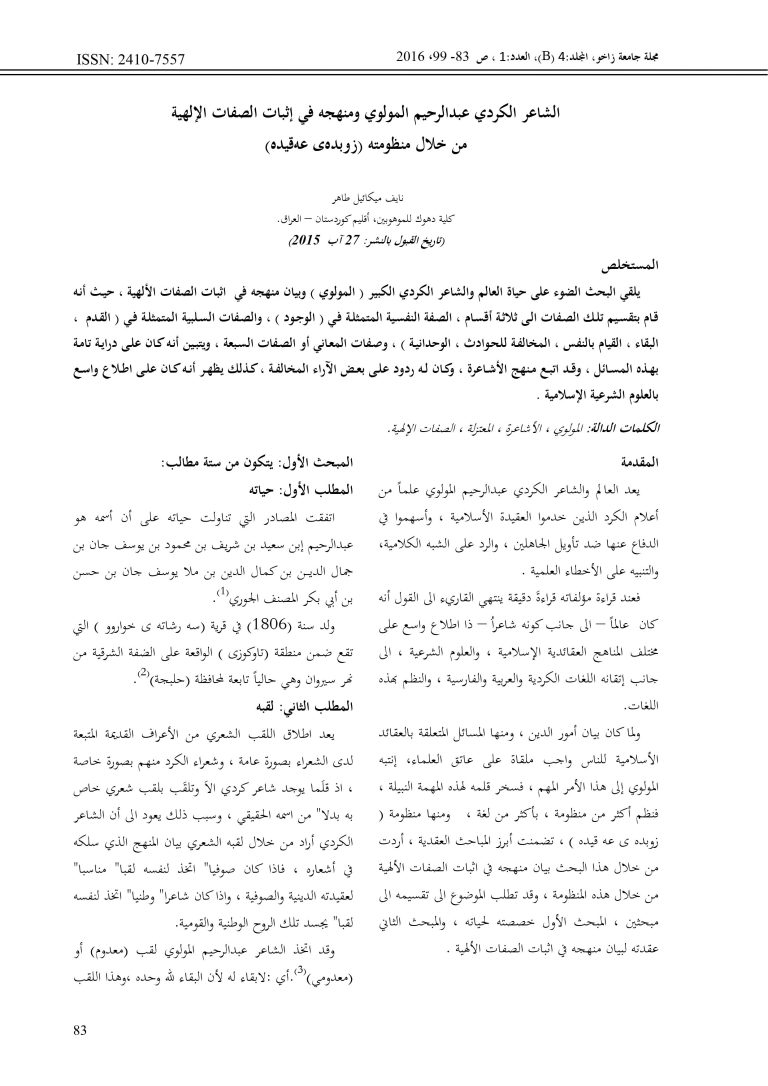 مجلة جامعة زاخو، المجلد:4 (B)، العدد:1 ، ص 83- 99، 2016
ISSN: 2410-7557
الشاعر الكردي عبدالرحيم المولوي ومنهجه في إثبات الصفات الإلهية
من خلال منظومته (زوبدەی عەقيدە)
نايف ميكائيل طاهر
كلية دهوك للموهوبين، أقليم كوردستان – العراق.
(تاريخ القبول بالنشر: 27 آب 2015)
المستخلص
يلقي البحث الضوء على حياة العالم والشاعر الكردي الكبير ( المولوي ) وبيان منهجه في اثبات الصفات الألهية ، حيث أنه
قام بتقسيم تلك الصفات الى ثلاثة أقسام ، الصفة النفسية المتمثلة في ( الوجود ) ، والصفات السلبية المتمثلة في ( القدم ،
البقاء ، القيام بالنفس ، المخالفة للحوادث ، الوحدانية ) ، وصفات المعاني أو الصفات السبعة ، ويتبين أنه كان على دراية تامة
بهذه المسائل ، وقد اتبع منهج الأشاعرة ، وكان له ردود على بعض الآراء المخالفة ، كذلك يظهر أنه كان على اطلاع واسع
بالعلوم الشرعية الإسلامية .
الكلمات الدالة: المولوي ، الأشاعرة ، المعتزلة ، الصفات الإلهية.
المقدمة
يعد العالم والشاعر الكردي عبدالرحيم المولوي علماً من
أعلام الكرد الذين خدموا العقيدة الأسلامية ، وأسهموا في
الدفاع عنها ضد تأويل الجاهلين ، والرد على الشبه الكلامية،
والتنبيه على الأخطاء العلمية .
فعند قراءة مؤلفاته قراءةً دقيقة ينتهي القاريء الى القول أنه
كان عالماً – الى جانب كونه شاعراً – ذا اطلاع واسع على
مختلف المناهج العقائدية الإسلامية ، والعلوم الشرعية ، الى
جانب إتقانه اللغات الكردية والعربية والفارسية ، والنظم بهذه
اللغات.
ولما كان بيان أمور الدين ، ومنها المسائل المتعلقة بالعقائد
الأسلامية للناس واجب ملقاة على عاتق العلماء، إنتبه
المولوي إلى هذا الأمر المهم ، فسخر قلمه لهذه المهمة النبيلة ،
فنظم أكثر من منظومة ، بأكثر من لغة ، ومنها منظومة (
زوبده ى عه قيده ) ، تضمنت أبرز المباحث العقدية ، أردت
من خلال هذا البحث بيان منهجه في اثبات الصفات الألهية
من خلال هذه المنظومة ، وقد تطلب الموضوع الى تقسيمه الى
مبحثين ، المبحث الأول خصصته لحياته ، والمبحث الثاني
عقدته لبيان منهجه في اثبات الصفات الألهية .
المبحث الأول: يتكون من ستة مطالب:
المطلب الأول: حياته
اتفقت المصادر التي تناولت حياته على أن أسمه هو
عبدالرحيم إبن سعيد بن شريف بن محمود بن يوسف جان بن
جمال الدين بن كمال الدين بن ملا يوسف جان بن حسن
بن أبي بكر المصنف الجوري(1).
ولد سنة (1806) في قرية (سه رشاته ى خواروو ) التي
تقع ضمن منطقة (تاوكوزى ) الواقعة على الضفة الشرقية من
نهر سيروان وهي حالياً تابعة لمحافظة (حلبجة)(2).
المطلب الثاني: لقبه
يعد اطلاق اللقب الشعري من الأعراف القديمة المتبعة
لدى الشعراء بصورة عامة ، وشعراء الكرد منهم بصورة خاصة
، اذ قلَما يوجد شاعر كردي الاَ وتلقَب بلقب شعري خاص
به بدلا" من اسمه الحقيقي ، وسبب ذلك يعود الى أن الشاعر
الكردي أراد من خلال لقبه الشعري بيان المنهج الذي سلكه
في أشعاره ، فاذا كان صوفيا" اتخذ لنفسه لقبا" مناسبا"
لعقيدته الدينية والصوفية ، واذا كان شاعرا" وطنيا" اتخذ لنفسه
لقبا" يجسد تلك الروح الوطنية والقومية.
وقد اتخذ الشاعر عبدالرحيم المولوي لقب (معدوم) أو
(معدومي)(3).أي :لابقاء له لأن البقاء لله وحده ،وهذا اللقب
83